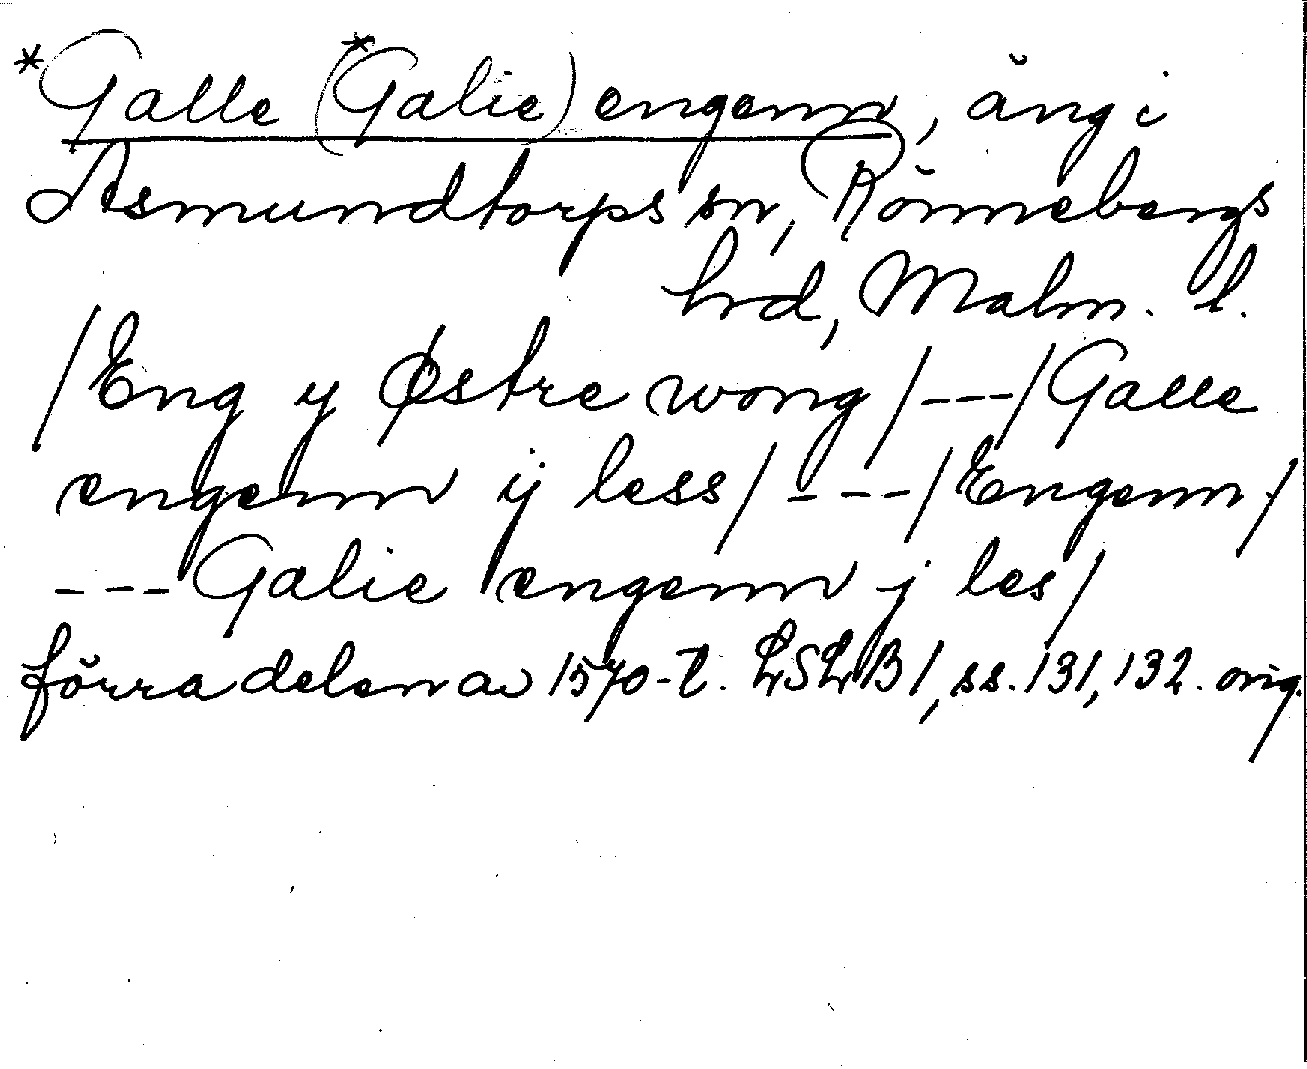 *Galle (*Galie) engenn, äng i
Asmundtorps sn, Rönnebergs
hrd, Malm. l.
/Eng y Østre wong/---/Galle
engenn ij less/---/Engenn/
---Galie engenn j les/
förra delen av 1570-t. LSLB1, ss. 131, 132. orig.